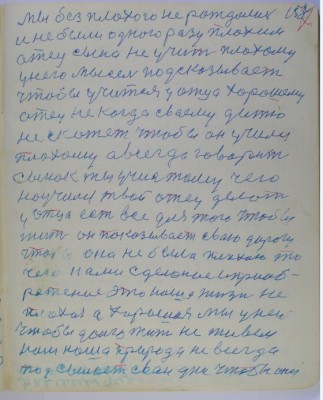 мы без плохого не рождались
и не были одного разу плохим
отец сына не учит плохому
у него мысль подсказывает
чтобы учится у отца хорошему
отец некогда своему дитю
не скажет чтобы он учили
плохому а всегда говорит
сынок ты учис тому чего
научил твой отец делать
у отца ест все для того чтобы
жит он показывает сваю дорогу
чтобы она не была плохою то
чего нами сделоное и приоб-
ретеное это наша жизн не
плохая а хорошая мы у ней
чтобы долго жит не живем
нам наша природа не всегда
подсылает сваи дни чтобы они